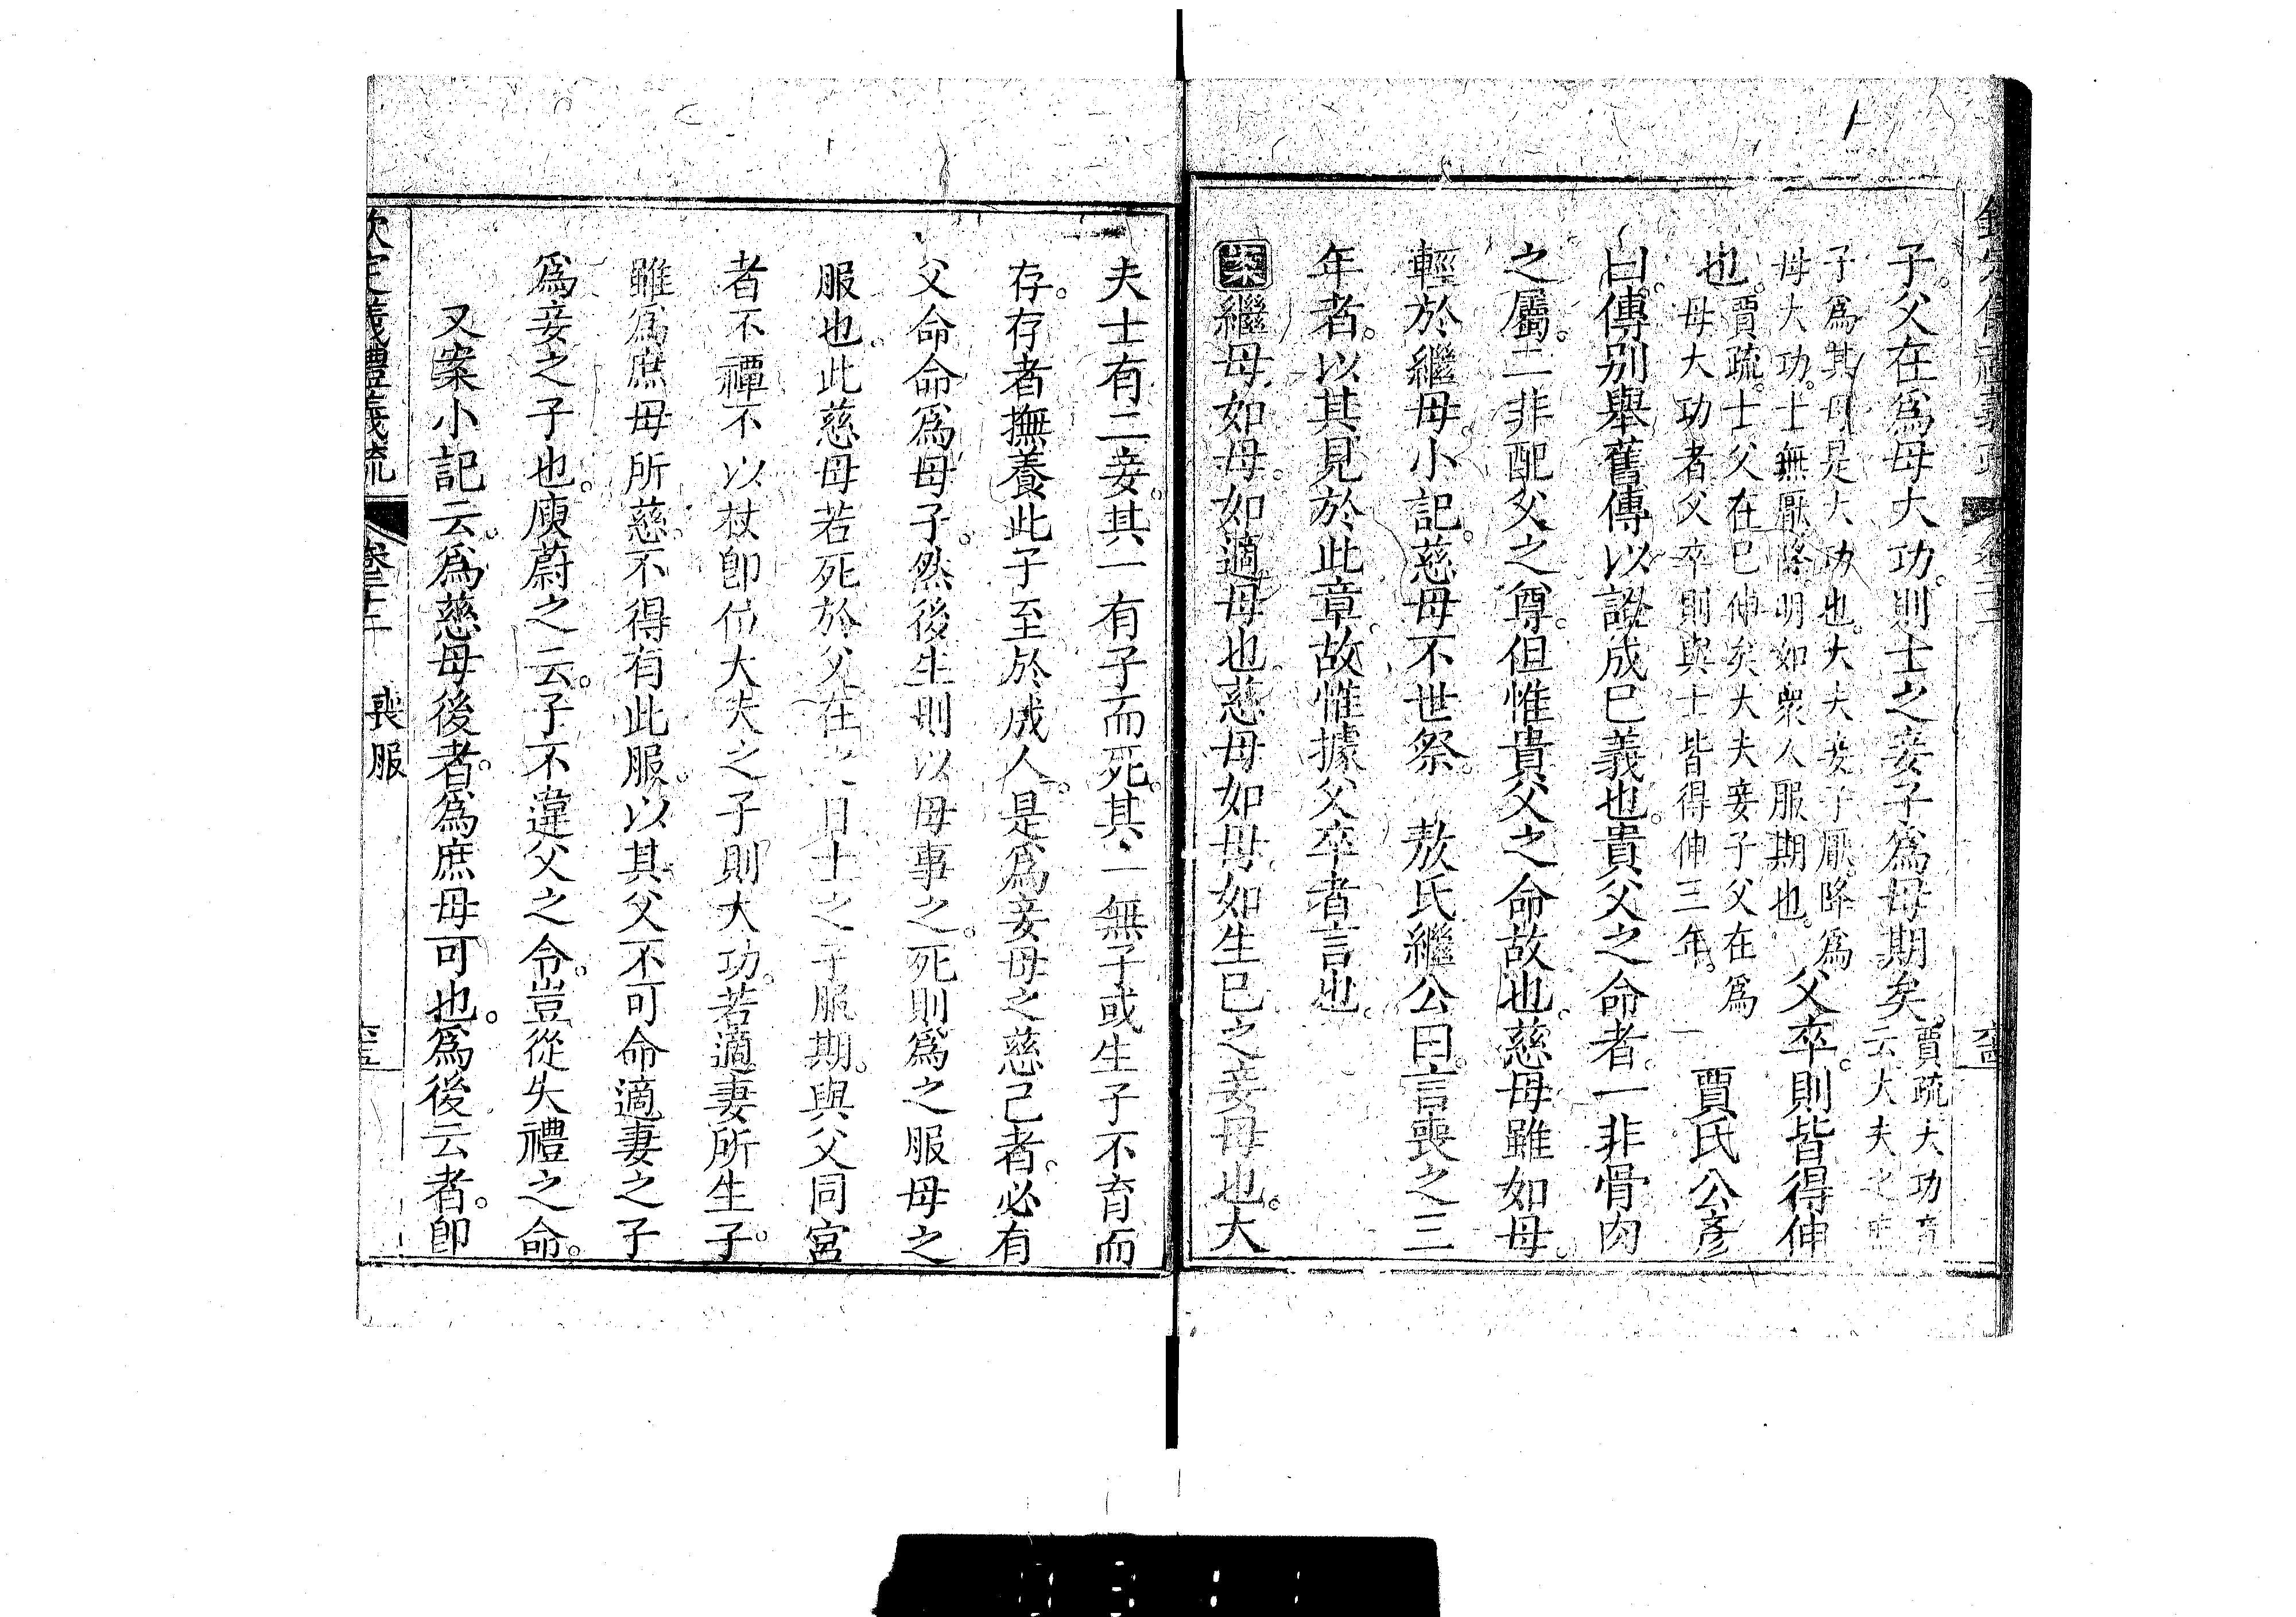 子。父在爲母大功。則士之妾子爲母期矣。賈疏大功章云大夫之庶
子爲其母是大功也。大夫妾子厭降爲母大功。士無厭降明如衆人服期也。父卒。則皆得伸
也。賈疏。士父在已伸矣大夫妾子父在爲母大功者父卒則與士皆得伸三年。賈氏公彥
曰。傳别舉舊傳以證成已義也。貴父之命者。一非骨肉
之屬。二非配父之尊。但惟貴父之命故也。慈母雖如母。
輕於繼母。小記。慈母不世祭。敖氏繼公曰。言喪之三
年者。以其見於此章。故惟據父卒者言也。
案繼母如母。如適母也。慈母如母。如生已之妾母也。大
夫士有二妾。其一有子而死。其一無子或生子不育而
存。存者撫養此子至於成人。是爲妾母之慈己者。必有
父命命爲母子。然後生則以母事之。死則爲之服母之
服也。此慈母若死於父在之日士之子服期。與父同宮
者不禫不以杖卽位大夫之子則大功。若適妻所生子。
雖爲庶母所慈。不得有此服。以其父不可命適妻之子
爲妾之子也。庾蔚之云。子不違父之令。豈從失禮之命。
又案小記云。爲慈母後者。爲庶母可也。爲後云者。卽
欽定儀禮義疏 卷二十二 喪服